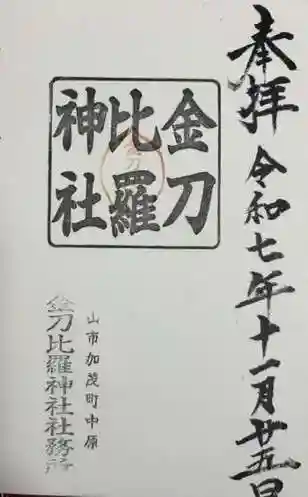 奉拝
令和七年十一月廿五日
金刀
比羅
神社
山市加茂町中原
金刀比羅神社社務所